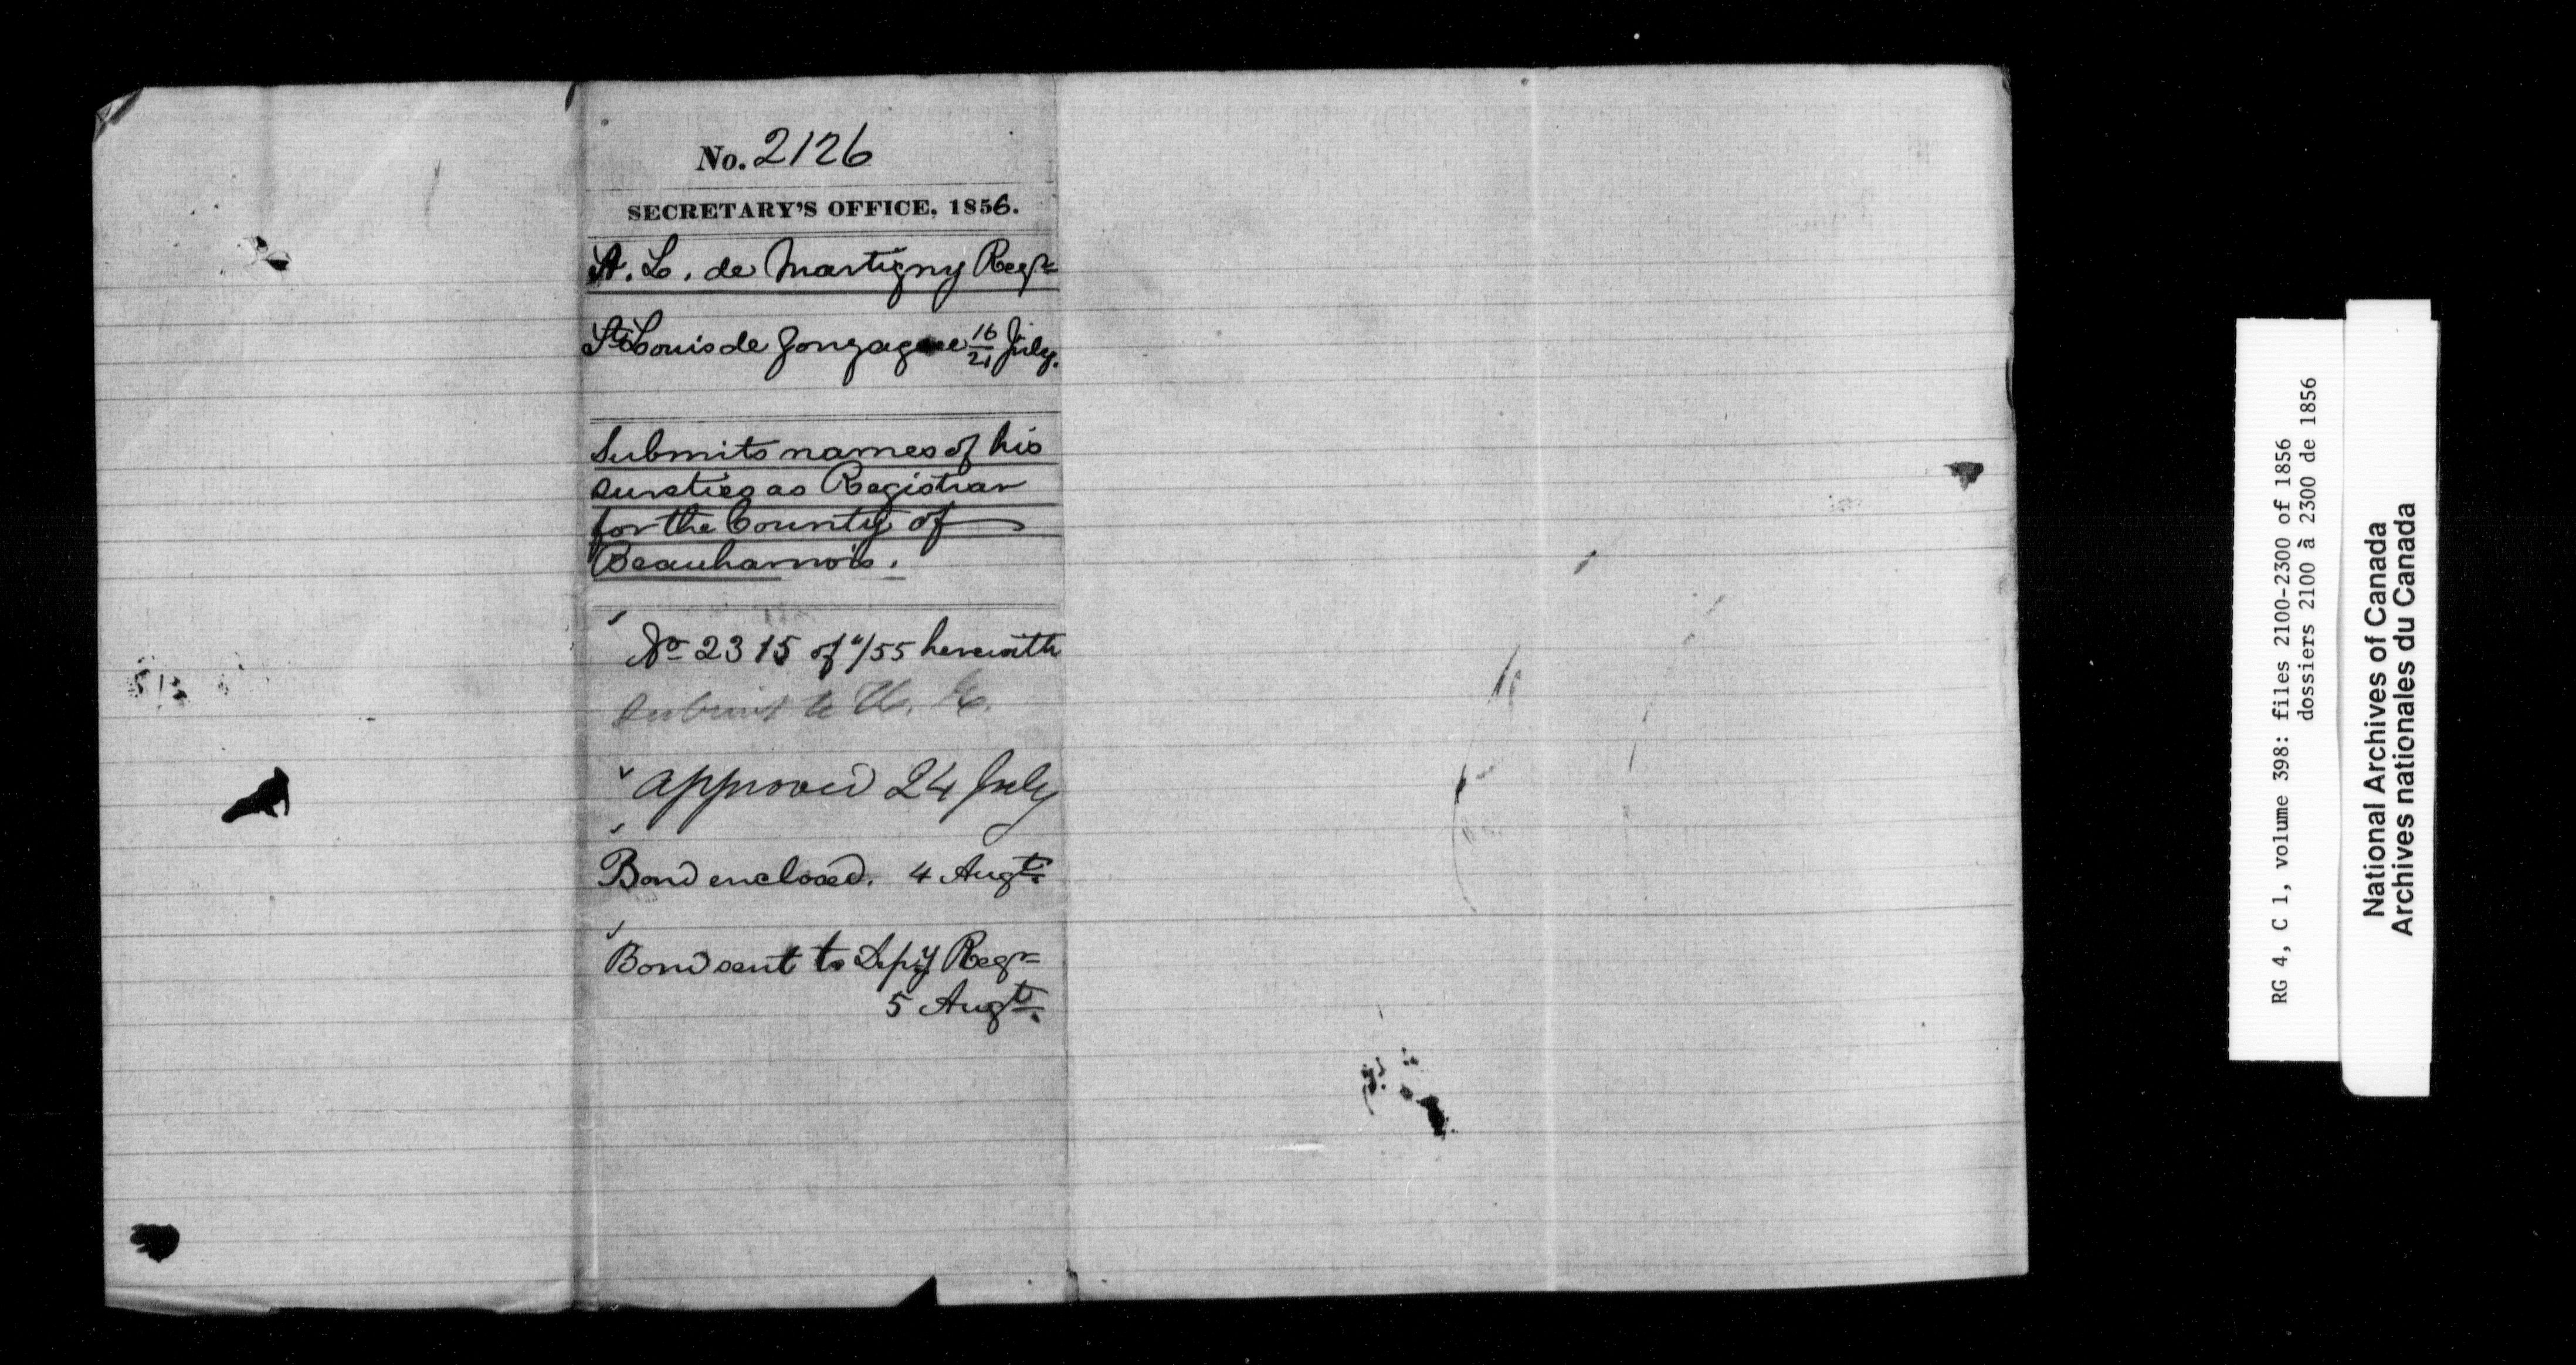 No. 2126
SECRETARY'S OFFICE, 1856.
A. L. de Martigny Regr
St Louis de Gonzague 16/21 July.
Submits names of his
sureties as Registrar
for the County of
Beauharnois.
No 2315 of "/55 herewith
Submit to
approved 24 July
Bond enclosed. 4 Augt.
Bond sent to Depy Regr
5 Augt.
RG 4, C 1, volume 398: files 2100-2300 of 1856
dossiers 2100 à 2300 de 1856
National Archives of Canada
Archives nationales du Canada